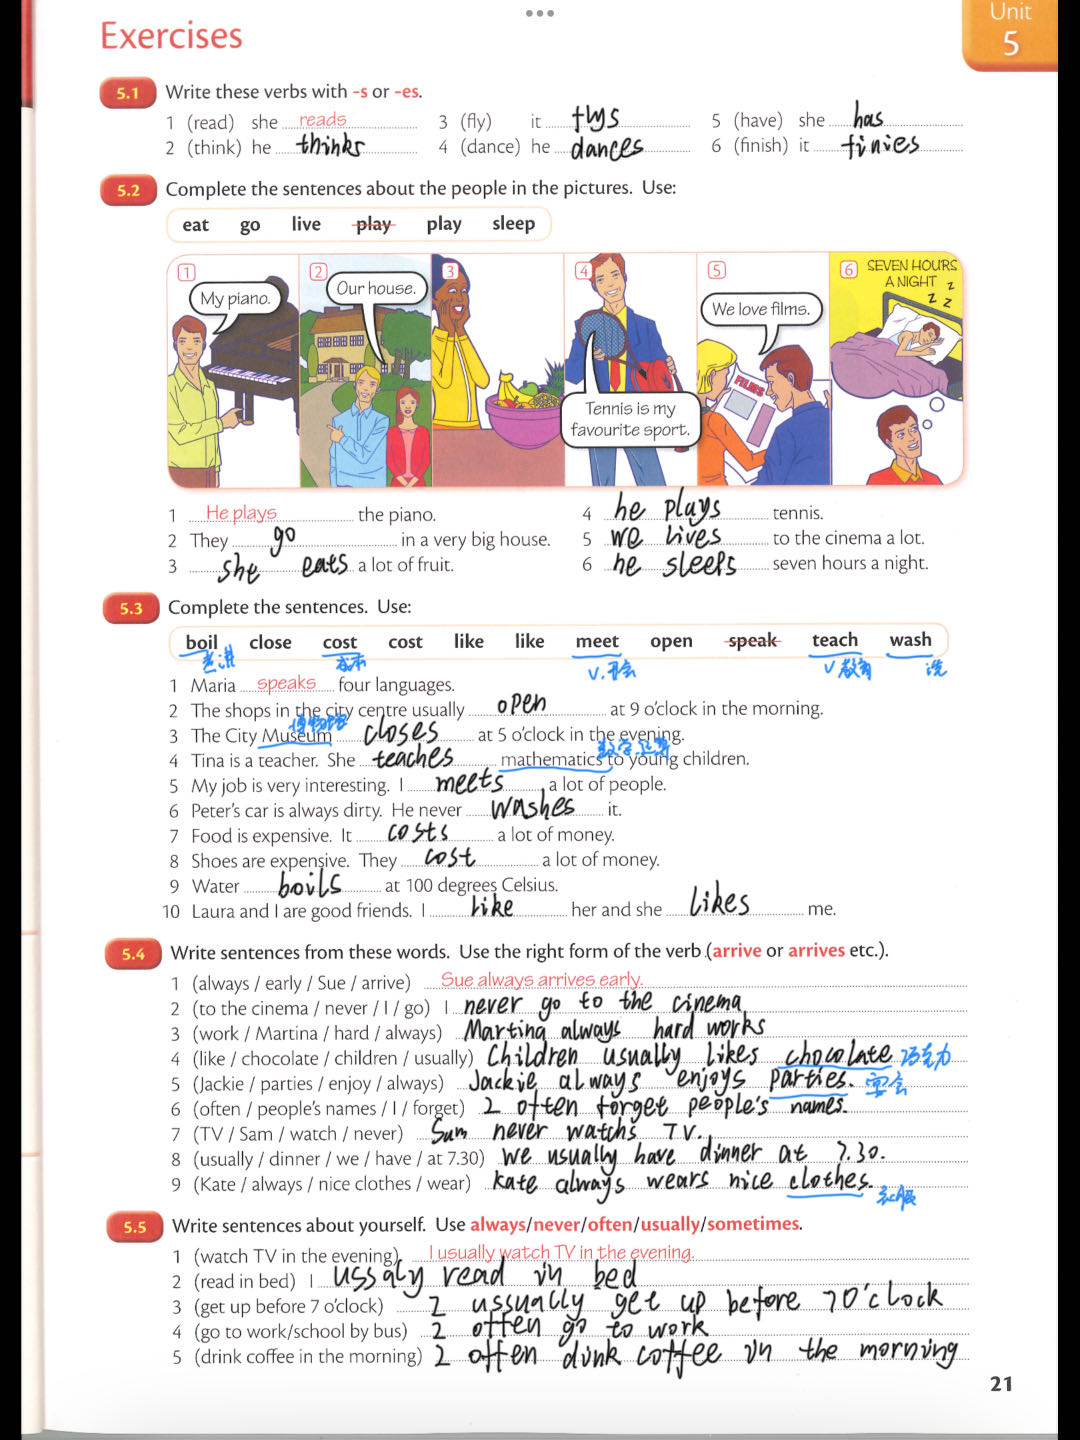 Exercises
Unit
5
5.1 Write these verbs with -s or -es.
1 (read) she reads 3 (fly) it flys 5 (have) she has
2 (think) he thinks 4 (dance) he dances 6 (finish) it finies
5.2 Complete the sentences about the people in the pictures. Use:
eat go live play play sleep
1 My piano.
2 Our house.
3
4 Tennis is my favourite sport.
5 We love films.
FILMS
6 SEVEN HOURS A NIGHT z z z
1 He plays the piano. 4 he plays tennis.
2 They go in a very big house. 5 we lives to the cinema a lot.
3 she eats a lot of fruit. 6 he sleeps seven hours a night.
5.3 Complete the sentences. Use:
boil close cost cost like like meet open speak teach wash
成本 v.开会 v教育 洗
1 Maria speaks four languages.
2 The shops in the city centre usually open at 9 o'clock in the morning.
博物馆
3 The City Museum closes at 5 o'clock in the evening.
4 Tina is a teacher. She teaches mathematics to young children.
5 My job is very interesting. I meets a lot of people.
6 Peter's car is always dirty. He never washes it.
7 Food is expensive. It costs a lot of money.
8 Shoes are expensive. They cost a lot of money.
9 Water boils at 100 degrees Celsius.
10 Laura and I are good friends. I like her and she likes me.
5.4 Write sentences from these words. Use the right form of the verb (arrive or arrives etc.).
1 (always / early / Sue / arrive) Sue always arrives early.
2 (to the cinema / never / I / go) I never go to the cinema
3 (work / Martina / hard / always) Martina always hard works
4 (like / chocolate / children / usually) Children usually likes chocolate 巧克力
5 (Jackie / parties / enjoy / always) Jackie always enjoys parties. 宴会
6 (often / people's names / I / forget) I often forget people's names.
7 (TV / Sam / watch / never) Sam never watchs TV.
8 (usually / dinner / we / have / at 7.30) we usually have dinner at 7.30.
9 (Kate / always / nice clothes / wear) kate always wears nice clothes.
5.5 Write sentences about yourself. Use always/never/often/usually/sometimes.
1 (watch TV in the evening) I usually watch TV in the evening.
2 (read in bed) I ussaly read in bed
3 (get up before 7 o'clock) I ussually get up before 7 o'clock
4 (go to work/school by bus) I offen go to work
5 (drink coffee in the morning) I offen dink coffee in the morning
21